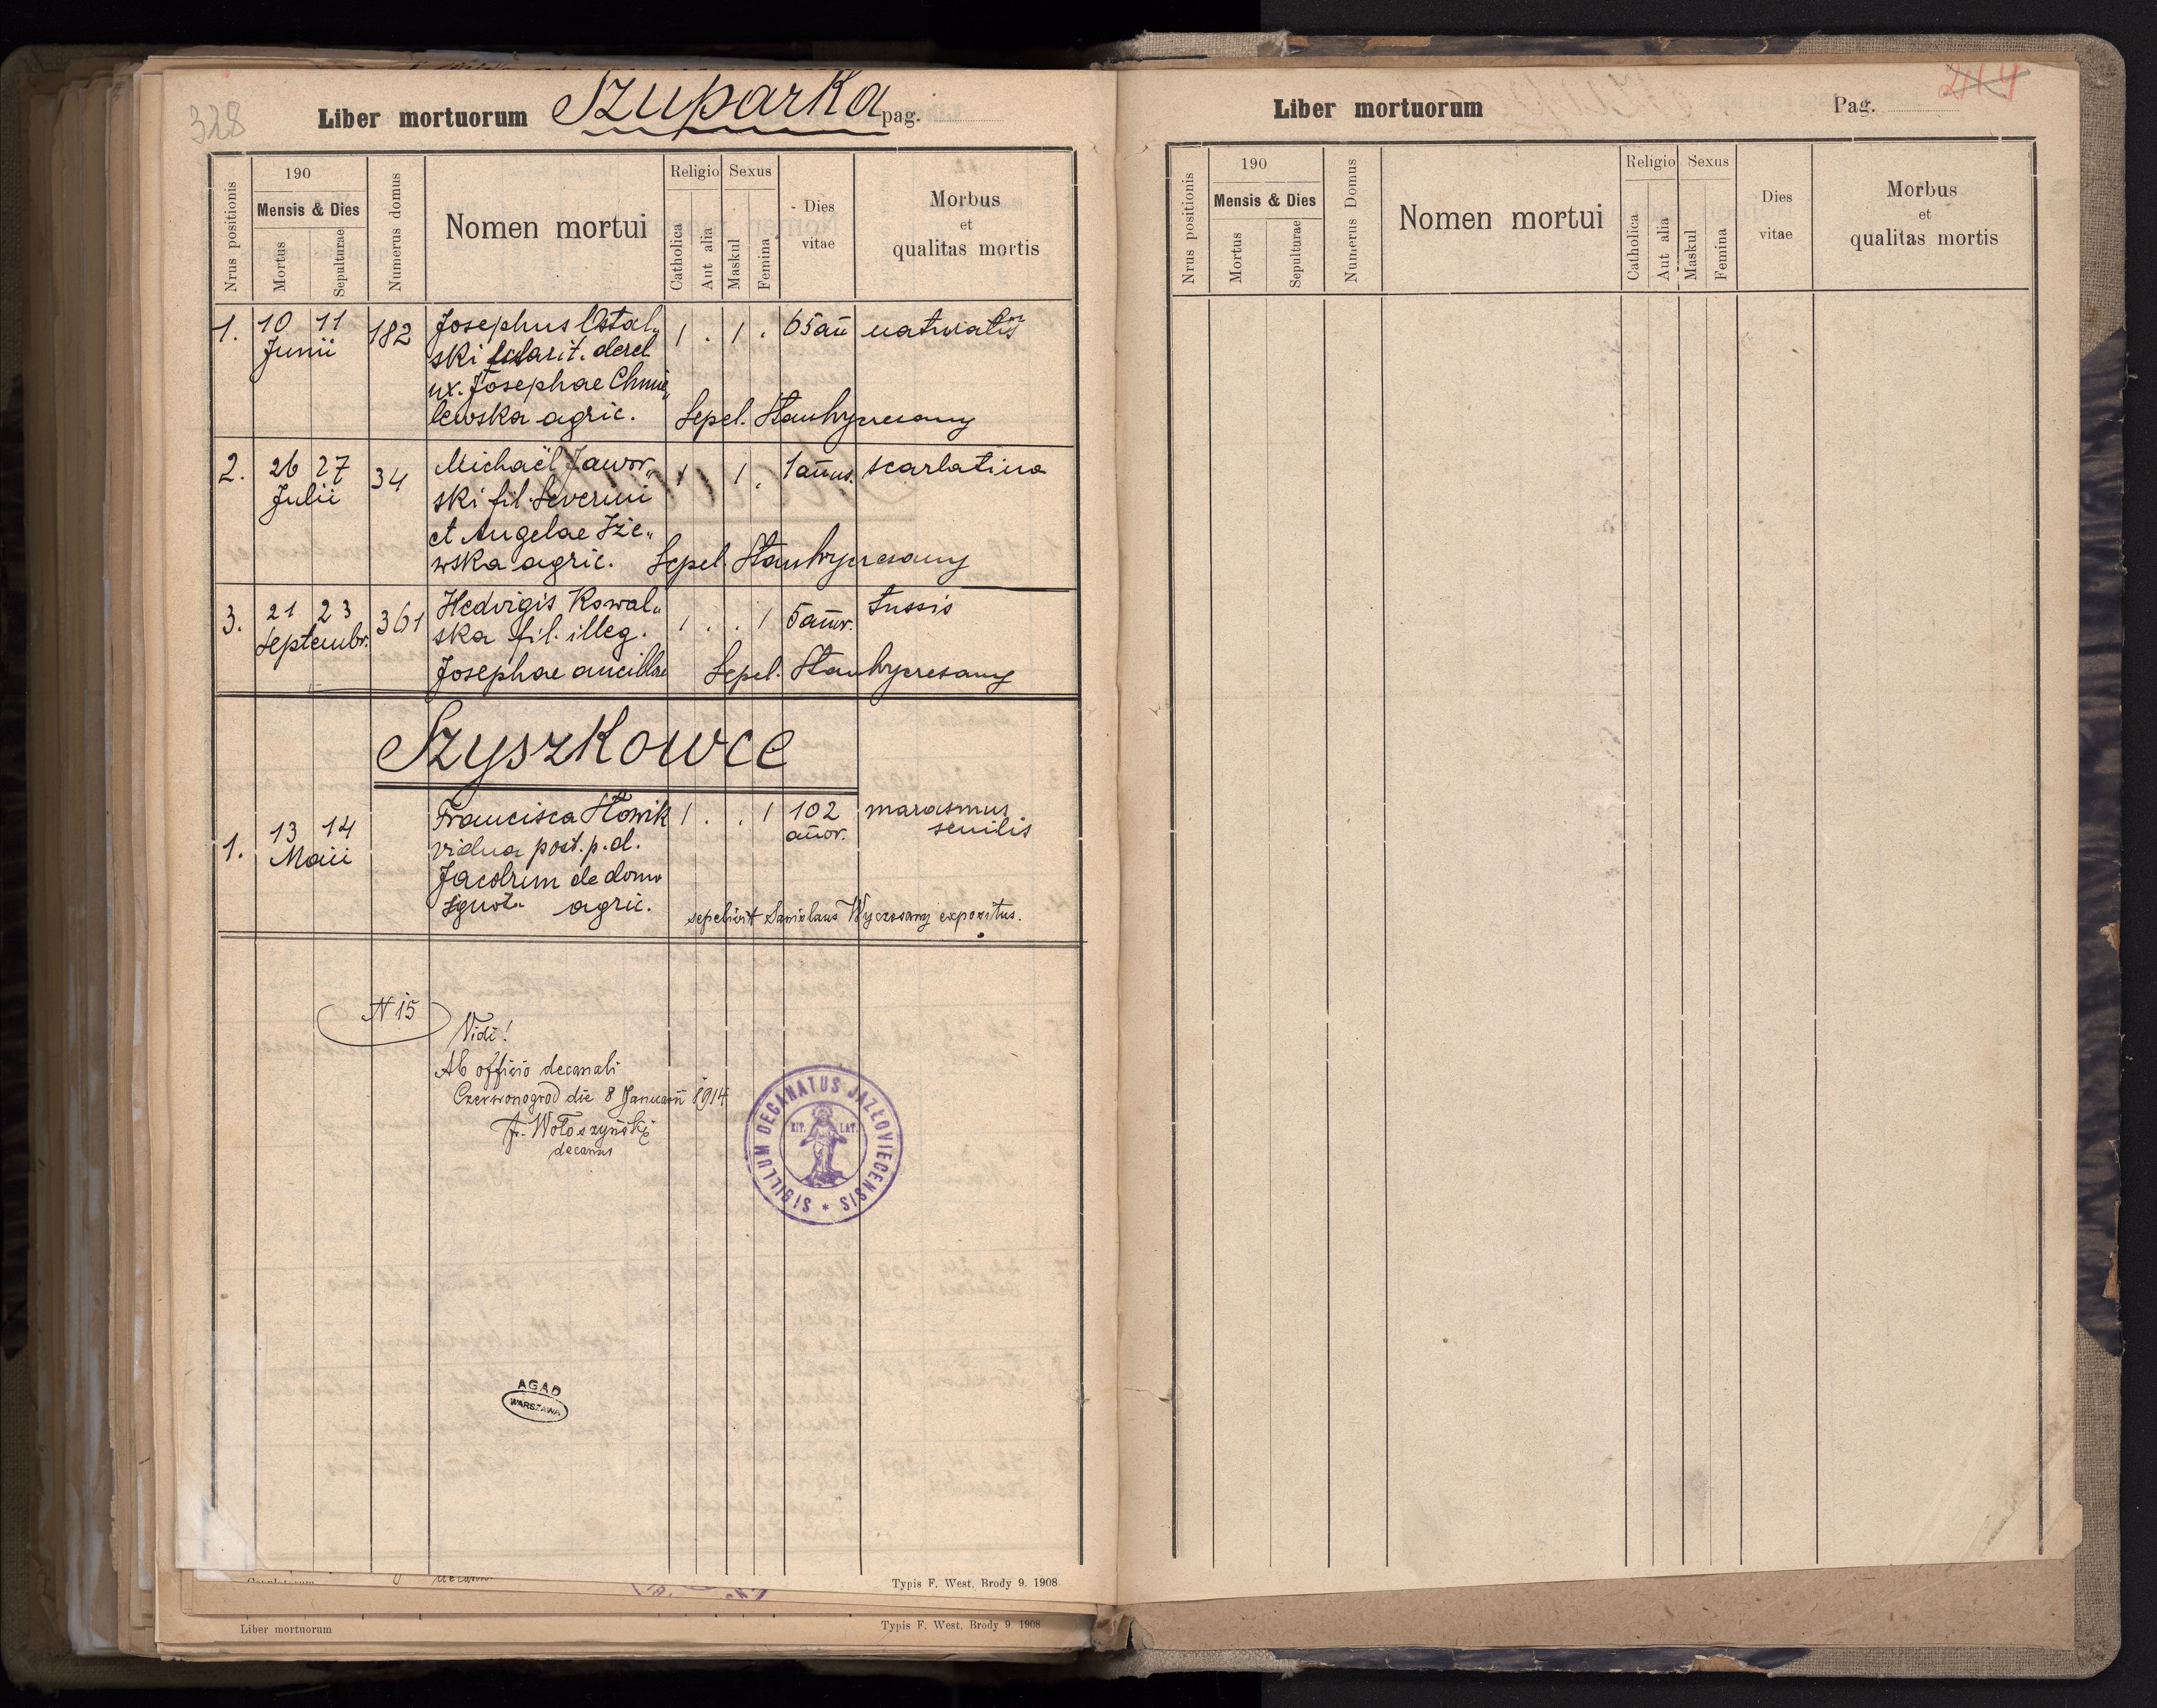 328
Liber mortuorum Szuparka pag.
Nrus positionis
190
Mensis & Dies
Mortus
Sepulturae
Numerus domus
Nomen mortui
Religio
Catholica
Aut alia
Sexus
Maskul
Femina
Dies
vitae
Morbus
et
qualitas mortis
1. 10 11 182 Josephus Ostal„ 1 . 1 . 65 añ naturalis
Junii
ski derel.
ux. Josephae Chmie„
lewska agric. Sepel.
2. 26 27 34 Michaël Jawor„ 1 1 . 1 annus. scarlatina
Julii
ski fil. Severini
et Angelae
wska agric. Sepel.
3. 21 23 361 Hedvigis Kowal„ 1 . . 1 5 añor. tussis
Septembr.
ska fil. illeg.
Josephae ancillae Sepel.
Szyszkowce
1. 13 14 Francisca Słowik 1 . . 1 102 marasmus
Maii
añor. senilis
vidua post. p. d.
Jacobum de domo
ignota agric. sepelivit Stanislaus Wyczesany expositus.
N 15
Vidi!
Ab officio decanali
Czerwonogrod die 8 Januarii 1914
Fr. Wołoszyński
decanus
SIGILLUM DECANATUS JAZŁOVIECENSIS *
RIT. LAT.
AGAD
WARSZAWA
Typis F. West, Brody 9. 1908
Liber mortuorum
Typis F. West, Brody 9 1908
Liber mortuorum Pag. 244
Nrus positionis
190
Mensis & Dies
Mortus
Sepulturae
Numerus Domus
Nomen mortui
Religio
Catholica
Aut alia
Sexus
Maskul
Femina
Dies
vitae
Morbus
et
qualitas mortis